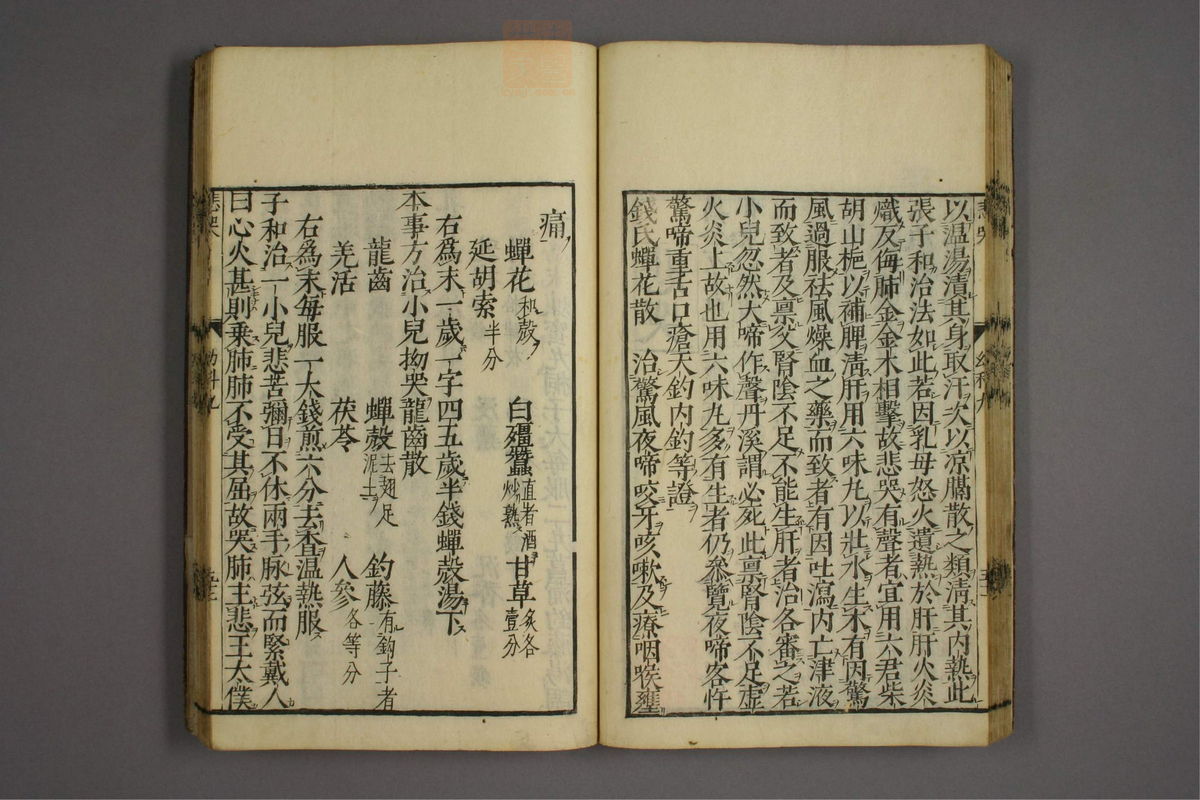 以温湯漬其身取汗次以凉膈散之類清其内熱此
張子和治法如此若因乳母怒火遺熱於肝肝火炎
熾反侮肺金金木相擊故悲哭有聲者宜用六君柴
胡山梔以補脾清肝用六味丸以壯水生木有因驚
風過服祛風燥血之藥而致者有因吐瀉内亡津液
而致者及禀父腎陰不足不能生肝者治各審之若
小兒忽然大啼作聲丹溪謂必死此禀腎陰不足虚
火炎上故也用六味丸多有生者仍叅覽夜啼客忤
驚啼重舌口瘡天釣内釣等證
錢氏蟬花散 治驚風夜啼咬牙咳嗽及療咽喉壅
痛
蟬花和殻 白殭蠶直者酒炒熟 甘草炙各壹分
延胡索半分
右爲末一歲一字四五歲半錢蟬殻湯下
本事方治小兒拗哭龍齒散
龍齒 蟬殻去翅足泥土 釣藤有鈎子者
羌活 茯苓 人參各等分
右爲末每服一大錢煎六分去柤温熱服
子和治一小兒悲苦彌日不休兩手脉弦而緊戴人
曰心火甚則乗肺肺不受其屈故哭肺主悲王太僕